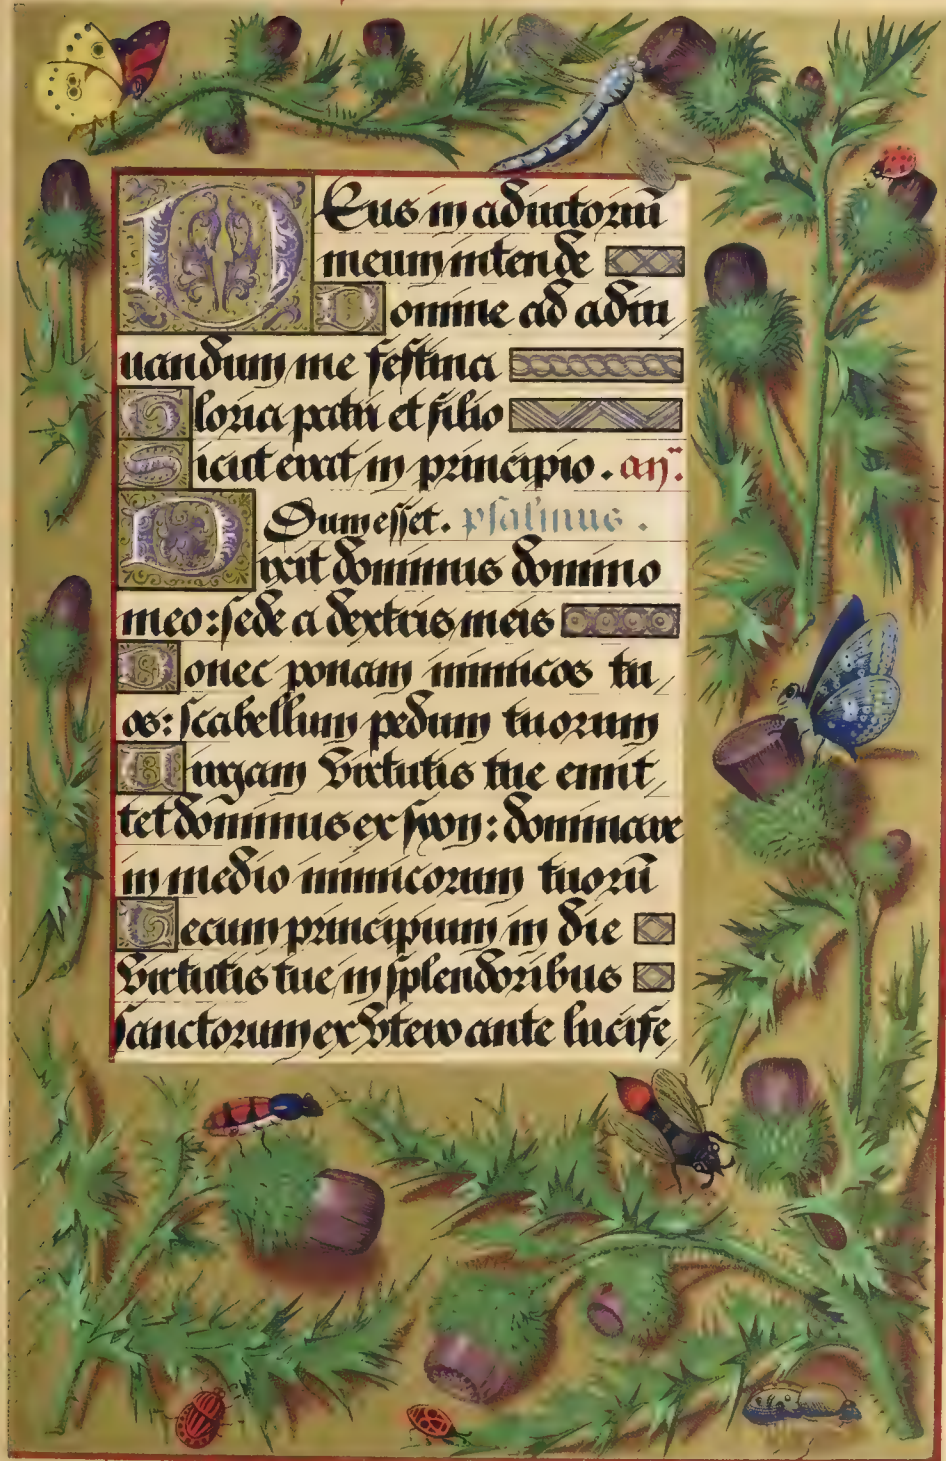 Deus in adiutoriū
meum intende
Domine ad adiu
uandum me festina
Gloria patri et filio
Sicut erat in principio. añ.
Dum esset. psalmus.
Dixit dominus domino
meo: sede a dextris meis
Donec ponam inimicos tu
os: scabellum pedum tuorum
Uirgam virtutis tue emit
tet dominus ex syon: dominare
in medio inimicorum tuorū
Tecum principium in die
virtutis tue in splendoribus
sanctorum ex vtero ante lucife